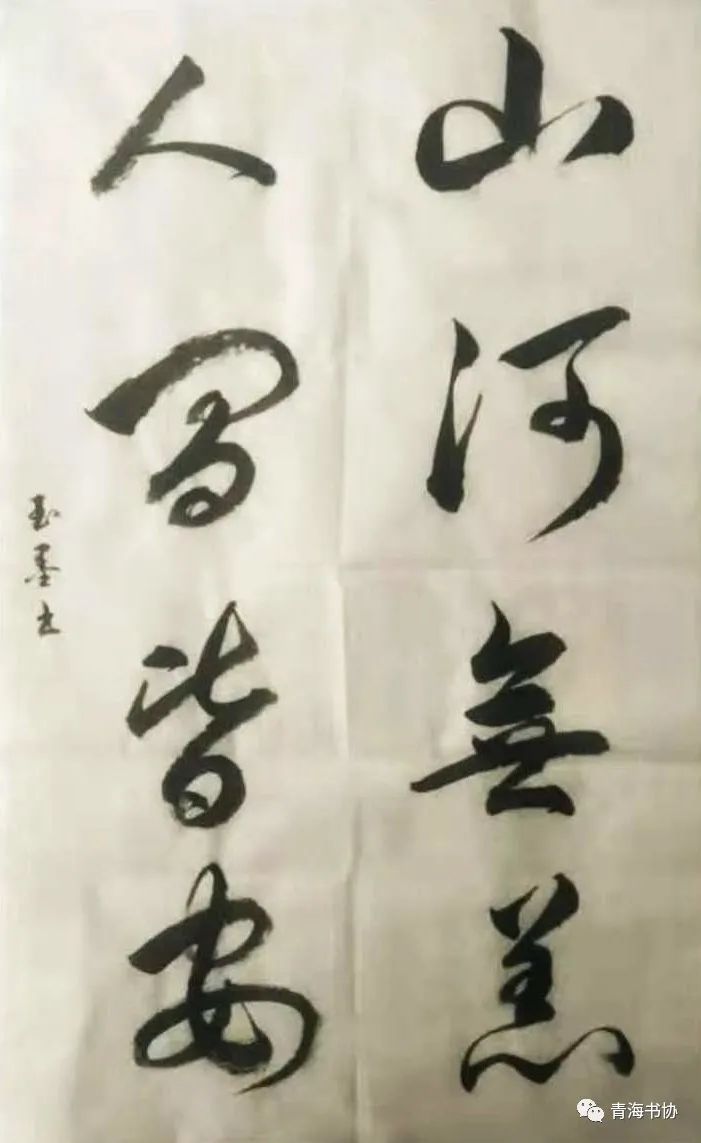 山河無恙
人間皆安
玉墨书
青海书协